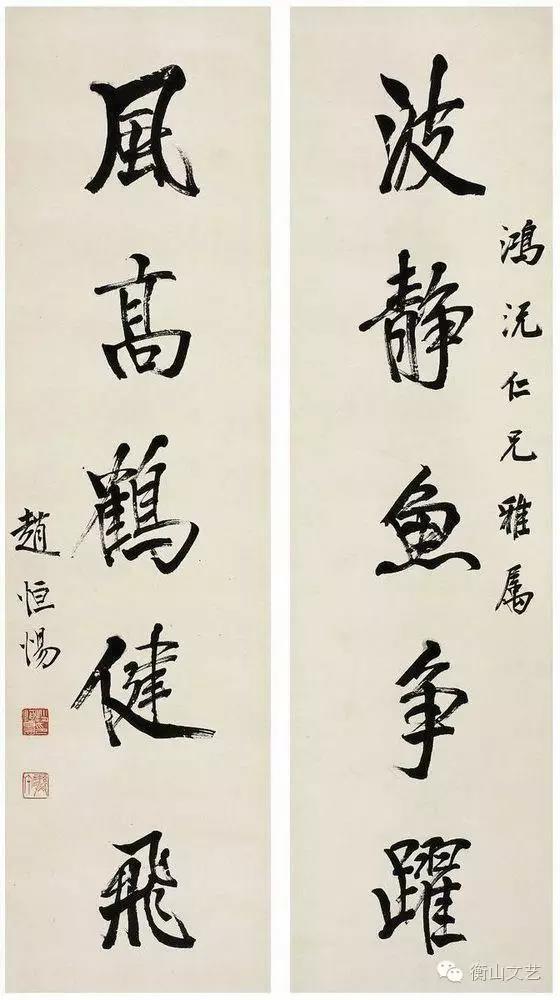 鴻沅仁兄雅属
波静魚争躍
風高鶴健飛
趙恒惕
衡山文艺